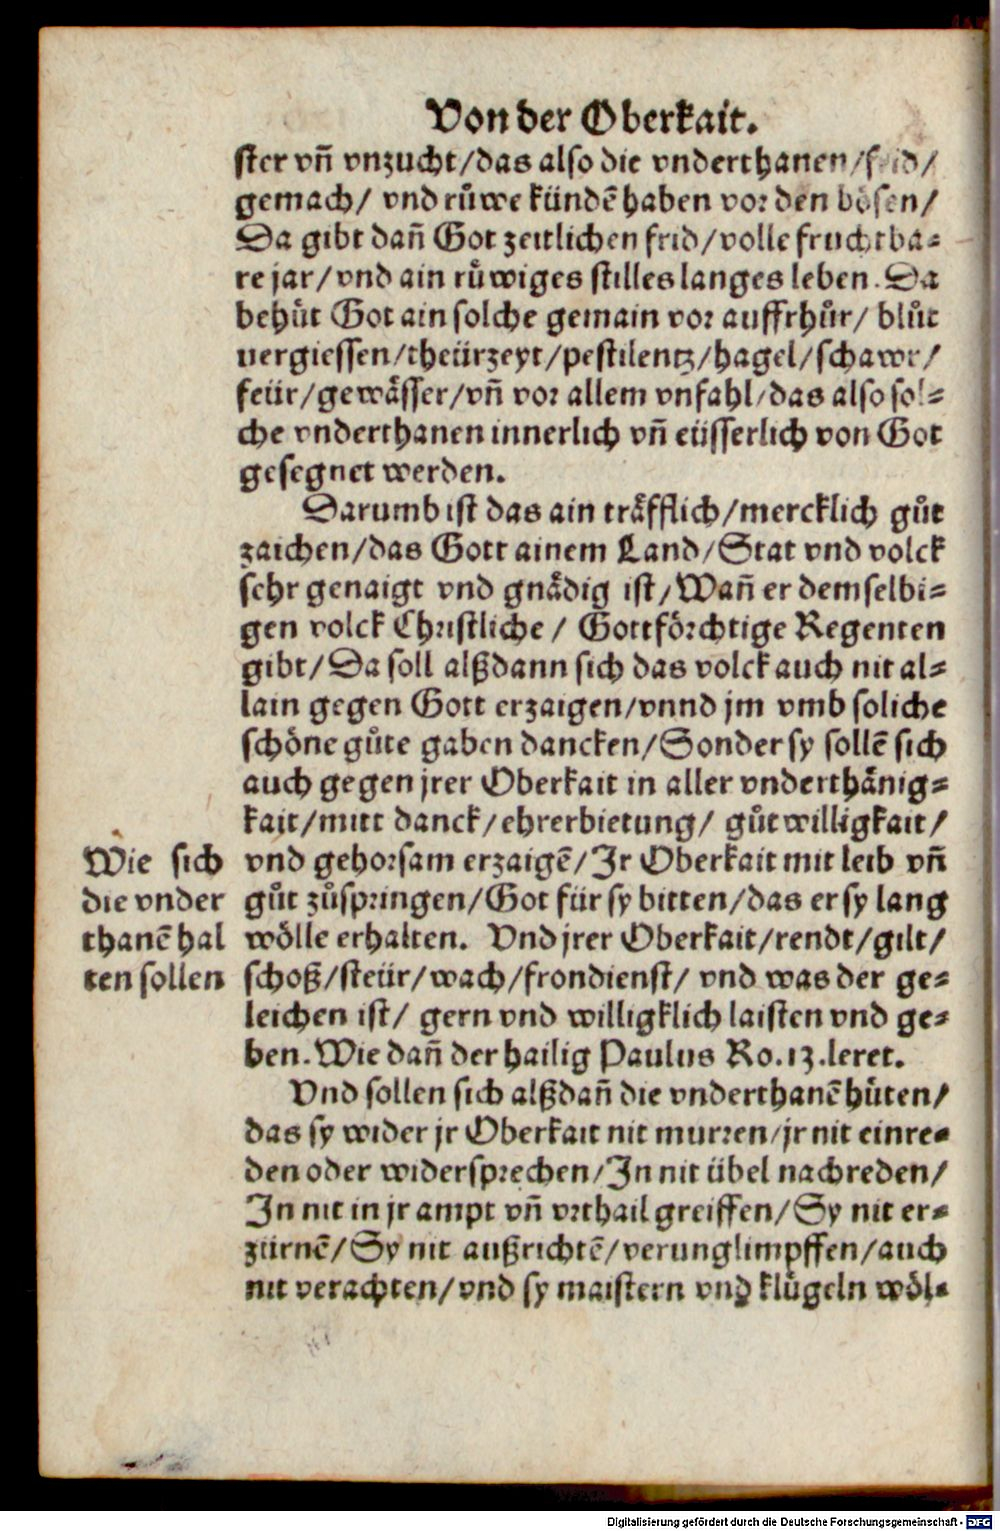 Von der Oberkait.
ster vñ vnzucht/das also die vnderthanen/frid/
gemach/ vnd růwe kündẽ haben vor den bösen/
Da gibt dañ Got zeitlichen frid/volle fruchtba⸗
re jar/vnd ain růwiges stilles langes leben. Da
behůt Got ain solche gemain vor auffrhůr/ blůt
uergiessen/theürzeyt/pestilentz/hagel/schawr/
feür/gewåsser/vñ vor allem vnfahl/das also sol⸗
che vnderthanen innerlich vñ eüsserlich von Got
gesegnet werden.
Darumb ist das ain träfflich/mercklich gůt
zaichen/das Gott ainem Land/Stat vnd volck
sehr genaigt vnd gnådig ist/Wañ er demselbi⸗
gen volck Christliche / Gottförchtige Regenten
gibt/Da soll alßdann sich das volck auch nit al⸗
lain gegen Gott erzaigen/vnnd jm vmb soliche
schöne gůte gaben dancken/Sonder sy sollẽ sich
auch gegen jrer Oberkait in aller vnderthånig⸗
kait/mitt danck/ehrerbietung/ gůtwilligkait/
vnd gehorsam erzaigẽ/Jr Oberkait mit leib vñ
gůt zůspringen/Got für sy bitten/das er sy lang
wölle erhalten. Vnd jrer Oberkait/rendt/gilt/
schoß/steür/wach/frondienst/ vnd was der ge⸗
leichen ist/ gern vnd willigklich laisten vnd ge⸗
ben. Wie dañ der hailig Paulus Ro.13.leret.
Vnd sollen sich alßdañ die vnderthanẽ hüten/
das sy wider jr Oberkait nit murren/jr nit einre⸗
den oder widersprechen/Jn nit übel nachreden/
Jn nit in jr ampt vñ vrthail greiffen/Sy nit er⸗
zürnẽ/Sy nit außrichtẽ/verunglimpffen/auch
nit verachten/vnd sy maistern vnd klůgeln wöl⸗
Wie sich
die vnder
thanẽ hal
ten sollen
Digitalisierung gefördert durch die Deutsche Forschungsgemeinschaft - DFG